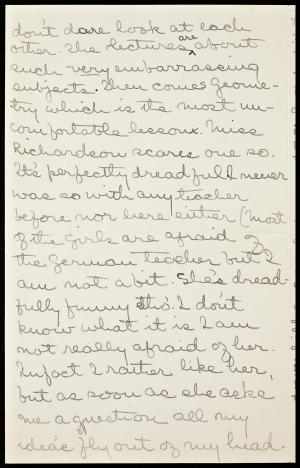 don't dare look at each
other. The lectures are about
such very embarrassing
subjects. Then comes Geome-
try which is the most un-
comfortable lesson. Miss
Richardson scares one so.
It's perfectly dreadful. I never
was so with any teacher
before nor here either (Most
of the girls are afraid of
the German teacher but I
am not a bit. She's dread-
fully funny tho'. I don't
know what it is I am
not really afraid of her.
In fact I rather like her,
but as soon as she asks
me a question all my
ideas fly out of my head.